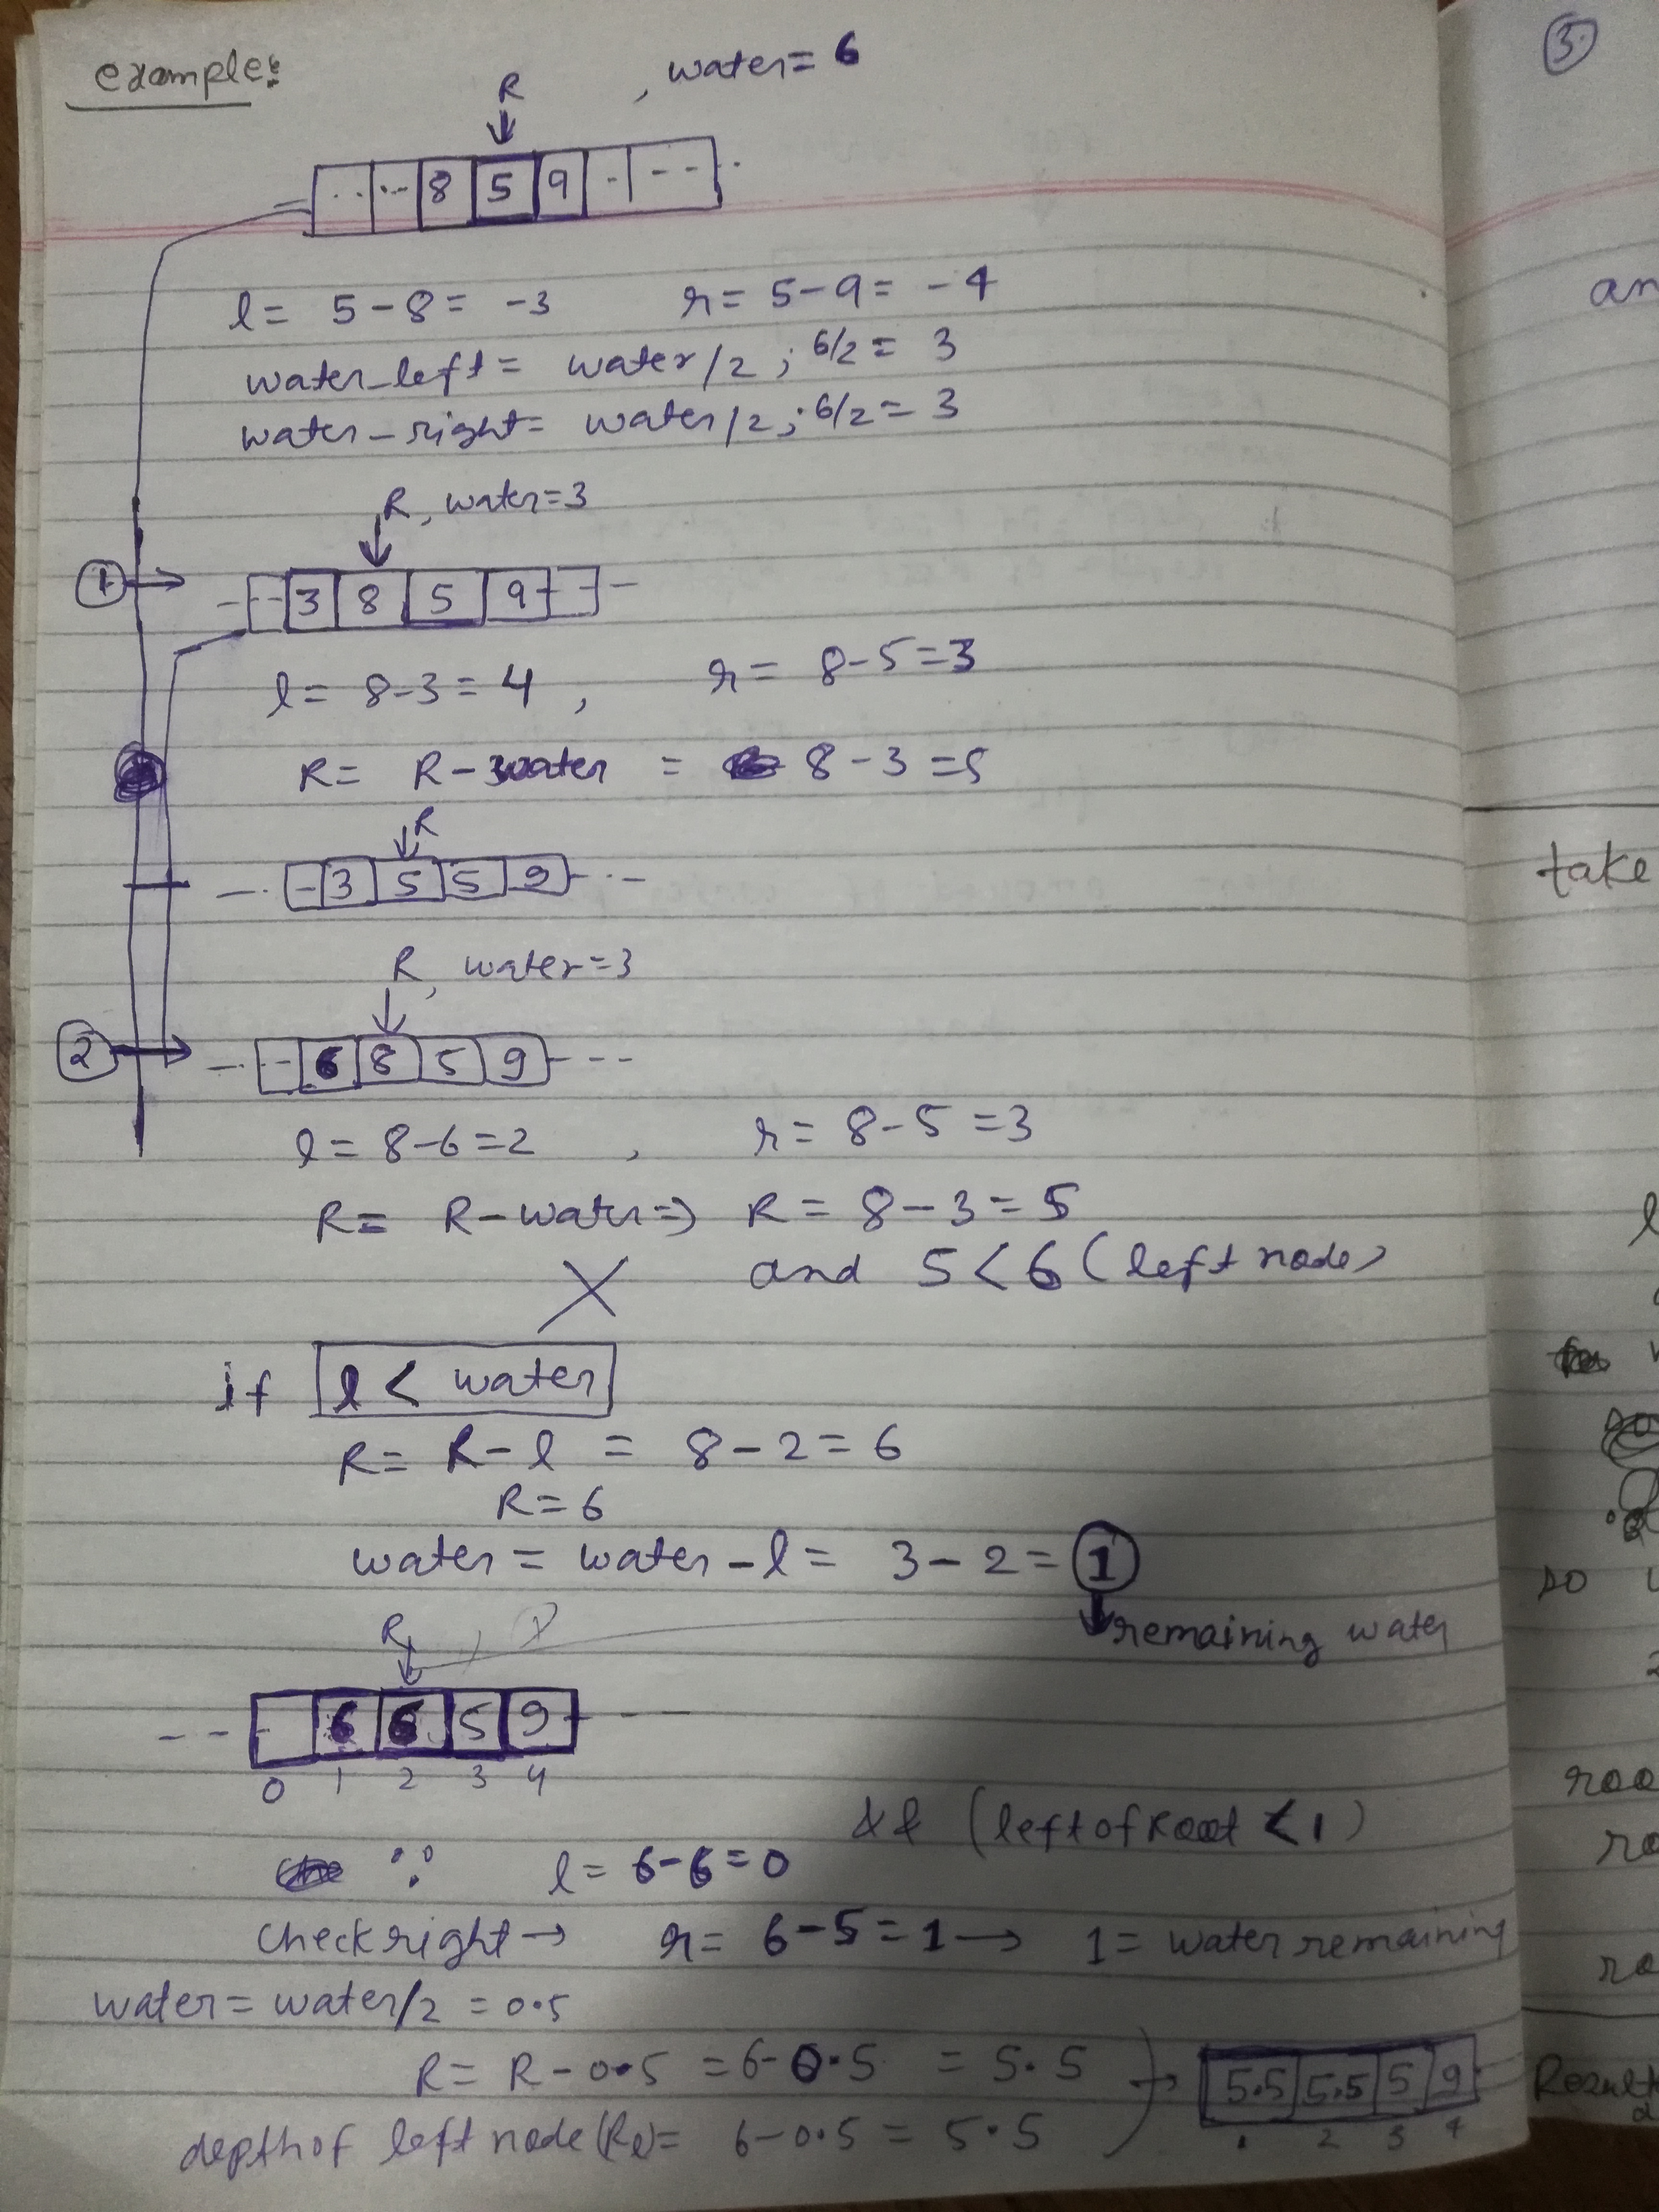 example:
3.
, water = 6
R
-- -- 8 5 9 - --
l = 5-8 = -3 r = 5-9 = -4
water_left = water/2 ; 6/2 = 3
water_right = water/2 ; 6/2 = 3
R, water=3
1 → -- 3 8 5 9 --
l = 8-3 = 4 , r = 8-5 = 3
R = R-water = 8-3 = 5
R
- 3 5 5 9 - --
R, water=3
2 → -- 6 8 5 9 ---
l = 8-6 = 2 , r = 8-5 = 3
R = R-water ⇒ R = 8-3 = 5
X and 5 < 6 (left node)
if l < water
R = R-l = 8-2 = 6
R = 6
water = water - l = 3-2 = 1
remaining water
R
-- - 6 6 5 9 ---
0 1 2 3 4
&& (leftofRoot < 1)
∵ l = 6-6 = 0
check right → r = 6-5 = 1 → 1 = water remaining
water = water/2 = 0.5
R = R-0.5 = 6-0.5 = 5.5 → 5.5 5.5 5 9
1 2 3 4
depth of left node (Rl) = 6-0.5 = 5.5
an
take
l
so
roo
ro
ro
Result